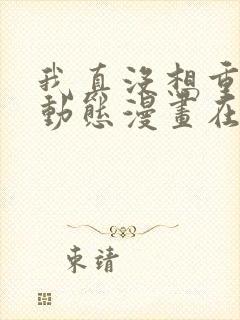 我真没想重
動態漫畫在
東靖